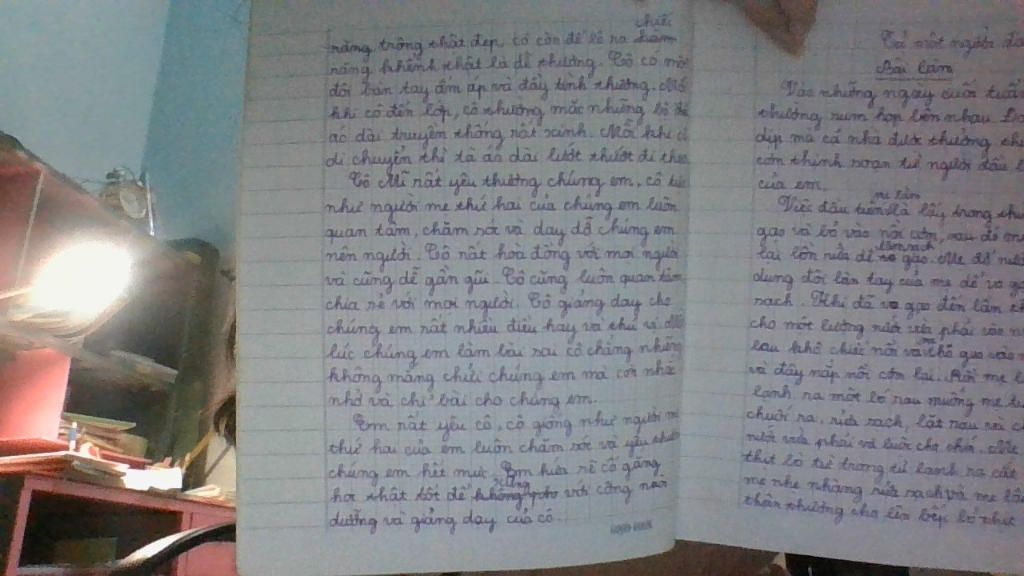 chiếc
nắng trông thật đẹp, cô còn để lộ ra hàm
răng khểnh thật là dễ thương. Cô có một
đôi bàn tay ấm áp và đầy tình thương. Mỗi
khi cô đến lớp, cô thường mặc những bộ
áo dài truyền thống rất xinh. Mỗi khi cô
di chuyển thì tà áo dài lướt thướt đi theo
Cô Mĩ rất yêu thương chúng em, cô
như người mẹ thứ hai của chúng em luôn
quan tâm, chăm sóc và dạy dỗ chúng em
nên người. Cô rất hoà đồng với mọi người
và cũng dễ gần gũi. Cô cũng luôn quan tâm
chia sẻ với mọi người. Cô giảng dạy cho
chúng em rất nhiều điều hay và thú vị.
lúc chúng em làm bài sai cô chẳng những
không mắng chửi chúng em mà còn nhắc
nhở và chỉ bài cho chúng em.
Em rất yêu cô, cô giống như người mẹ
thứ hai của em luôn chăm sóc và yêu thương
chúng em hết mực. Em hứa sẽ cố gắng
xứng
học thật tốt để không phụ với công nuôi
dưỡng và giảng dạy của cô.
Tả một người
Bài làm
Vào những ngày cuối tuần
thường sum họp bên nhau.
dịp mà cả nhà được thưởng
cơm thịnh soạn từ người đầu bếp
của em.
mẹ làm
Việc đầu tiên là lấy trong
gạo và bỏ vào nồi cơm, sau đó
làm sạch
lại bồn rửa để gạo. Mẹ đổ nước
dùng đôi bàn tay của mẹ để vo gạo
sạch. Khi đã vo gạo đến lần
cho một lượng nước vừa phải vào
lau khô chiếc nồi và cho gạo vào
và đậy nắp nồi cơm lại. Rồi mẹ
lạnh ra một bó rau muống mẹ
chuối ra, rửa sạch, lặt rau và
nước vừa phải và luộc cho chín.
thịt bò từ trong tủ lạnh ra cắt
mẹ nhẹ nhàng rửa sạch và mẹ
thân thương cho lên bếp